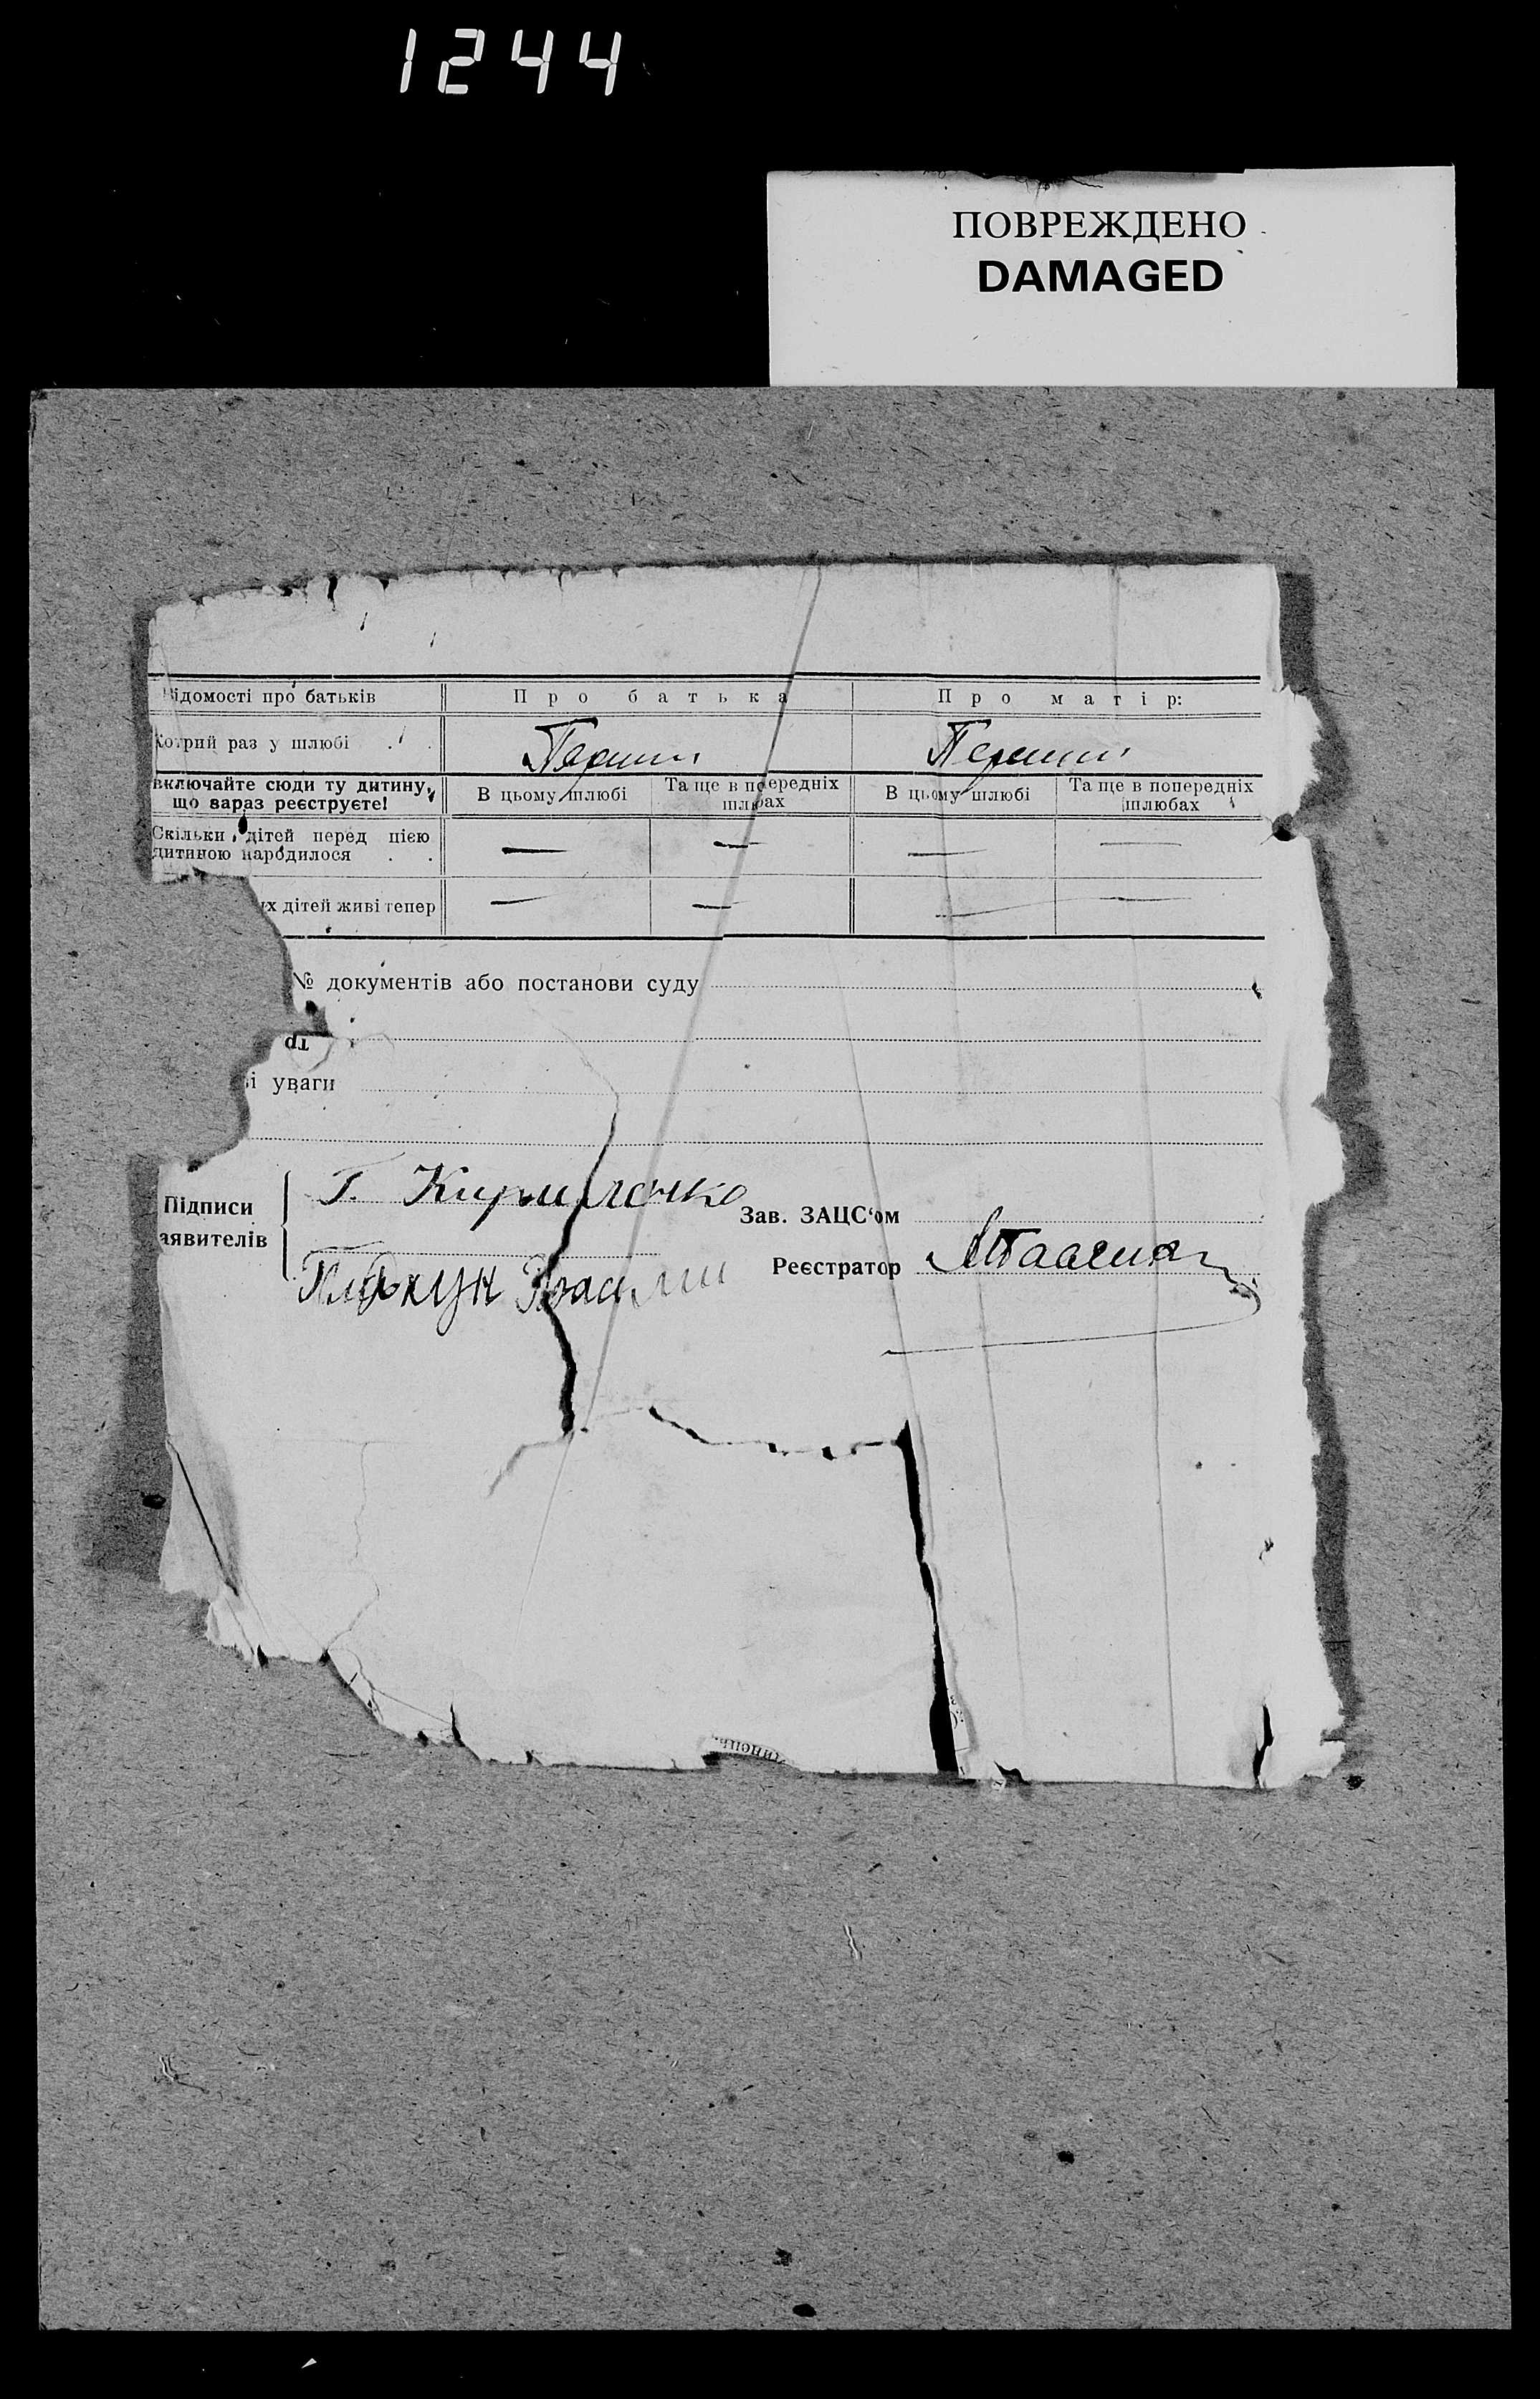 1244
ПОВРЕЖДЕНО
DAMAGED
ідомості про батьків П р о б а т ь к а П р о м а т і р:
Котрий раз у шлюбі . . Перший Перший
включайте сюди ту дитину, що вараз реєструєте! В цьому шлюбі Та ще в попередніх шлюбах В цьому шлюбі Та ще в попередніх шлюбах
Скільки дітей перед цією
дитиною народилося . . — — — —
их дітей живі тепер — — — —
№ документів або постанови суду
і уваги
Підписи
аявителів
Г. Кириленко
Зав. ЗАЦС‘ом
Реєстратор